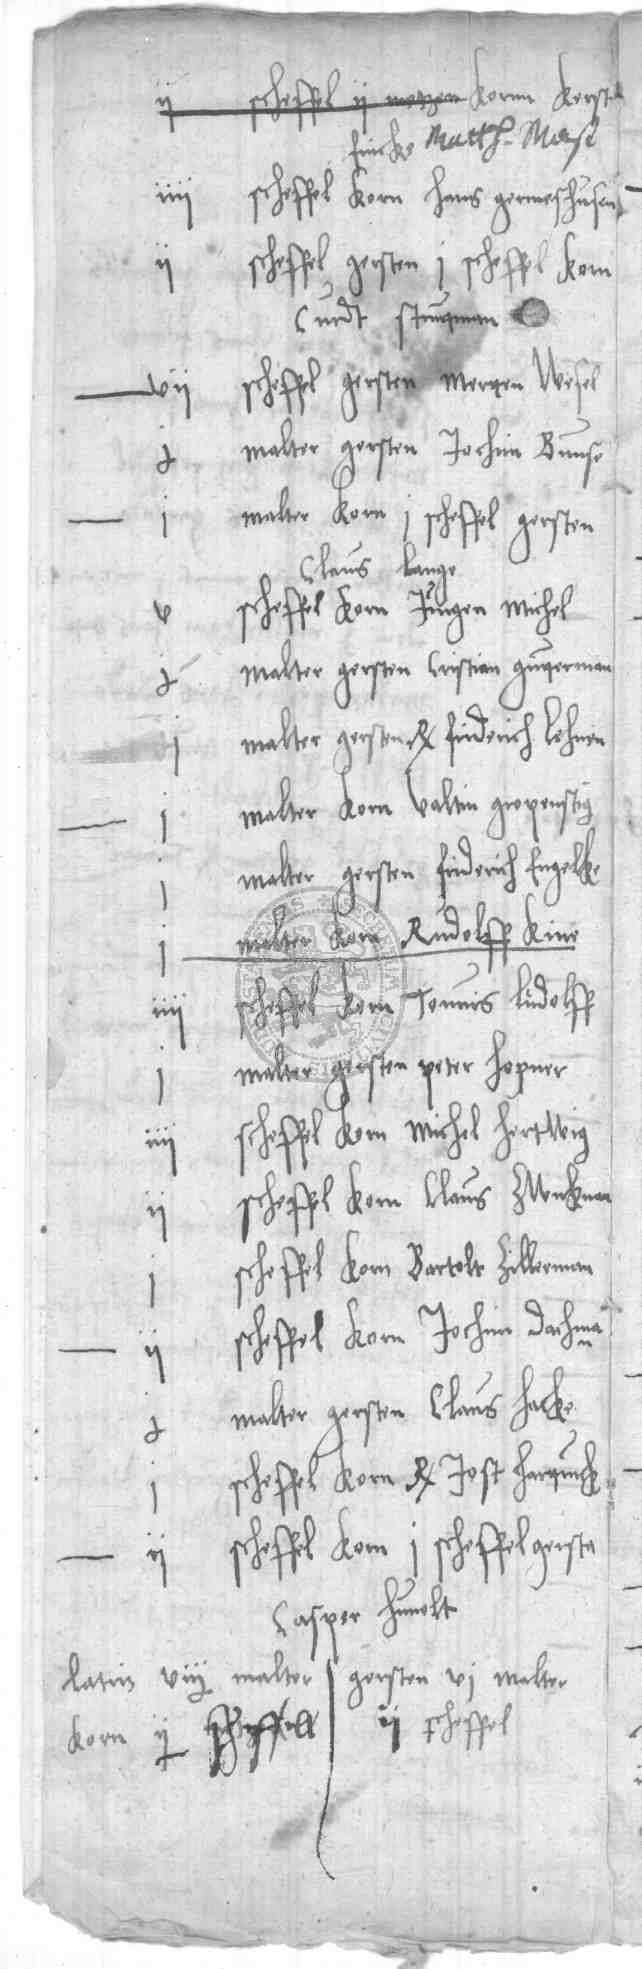 ij scheffel ij metzen Kornn Kersten
fincke Matth. Mase
iiij scheffel Korn hans germeshusen
ij scheffel gersten j scheffel Korn
Curdt
vij scheffel gersten Merten Wesel
j malter gersten Jochim Bunse
j malter Korn j scheffel gersten
Claus Lange
v scheffel Korn Jungen Michel
j malter gersten Cristian
j malter gersten friderich Lehnen
j malter Korn Valtin
j malter gersten friderich Engelke
j malter Korn Rudolff Kine
iiij scheffel Korn Tonnies ludolff
j malter gersten peter hopner
iiij scheffel Korn Michel hertwig
ij scheffel Korn Claus
j scheffel Korn Bartolt Zillerman
ij scheffel Korn Jochim
j malter gersten Claus hacke
j scheffel Korn Jost
ij scheffel Korn j scheffel gersten
Casper hunolt
latus viij malter gersten vj malter
korn ij scheffell ij scheffel